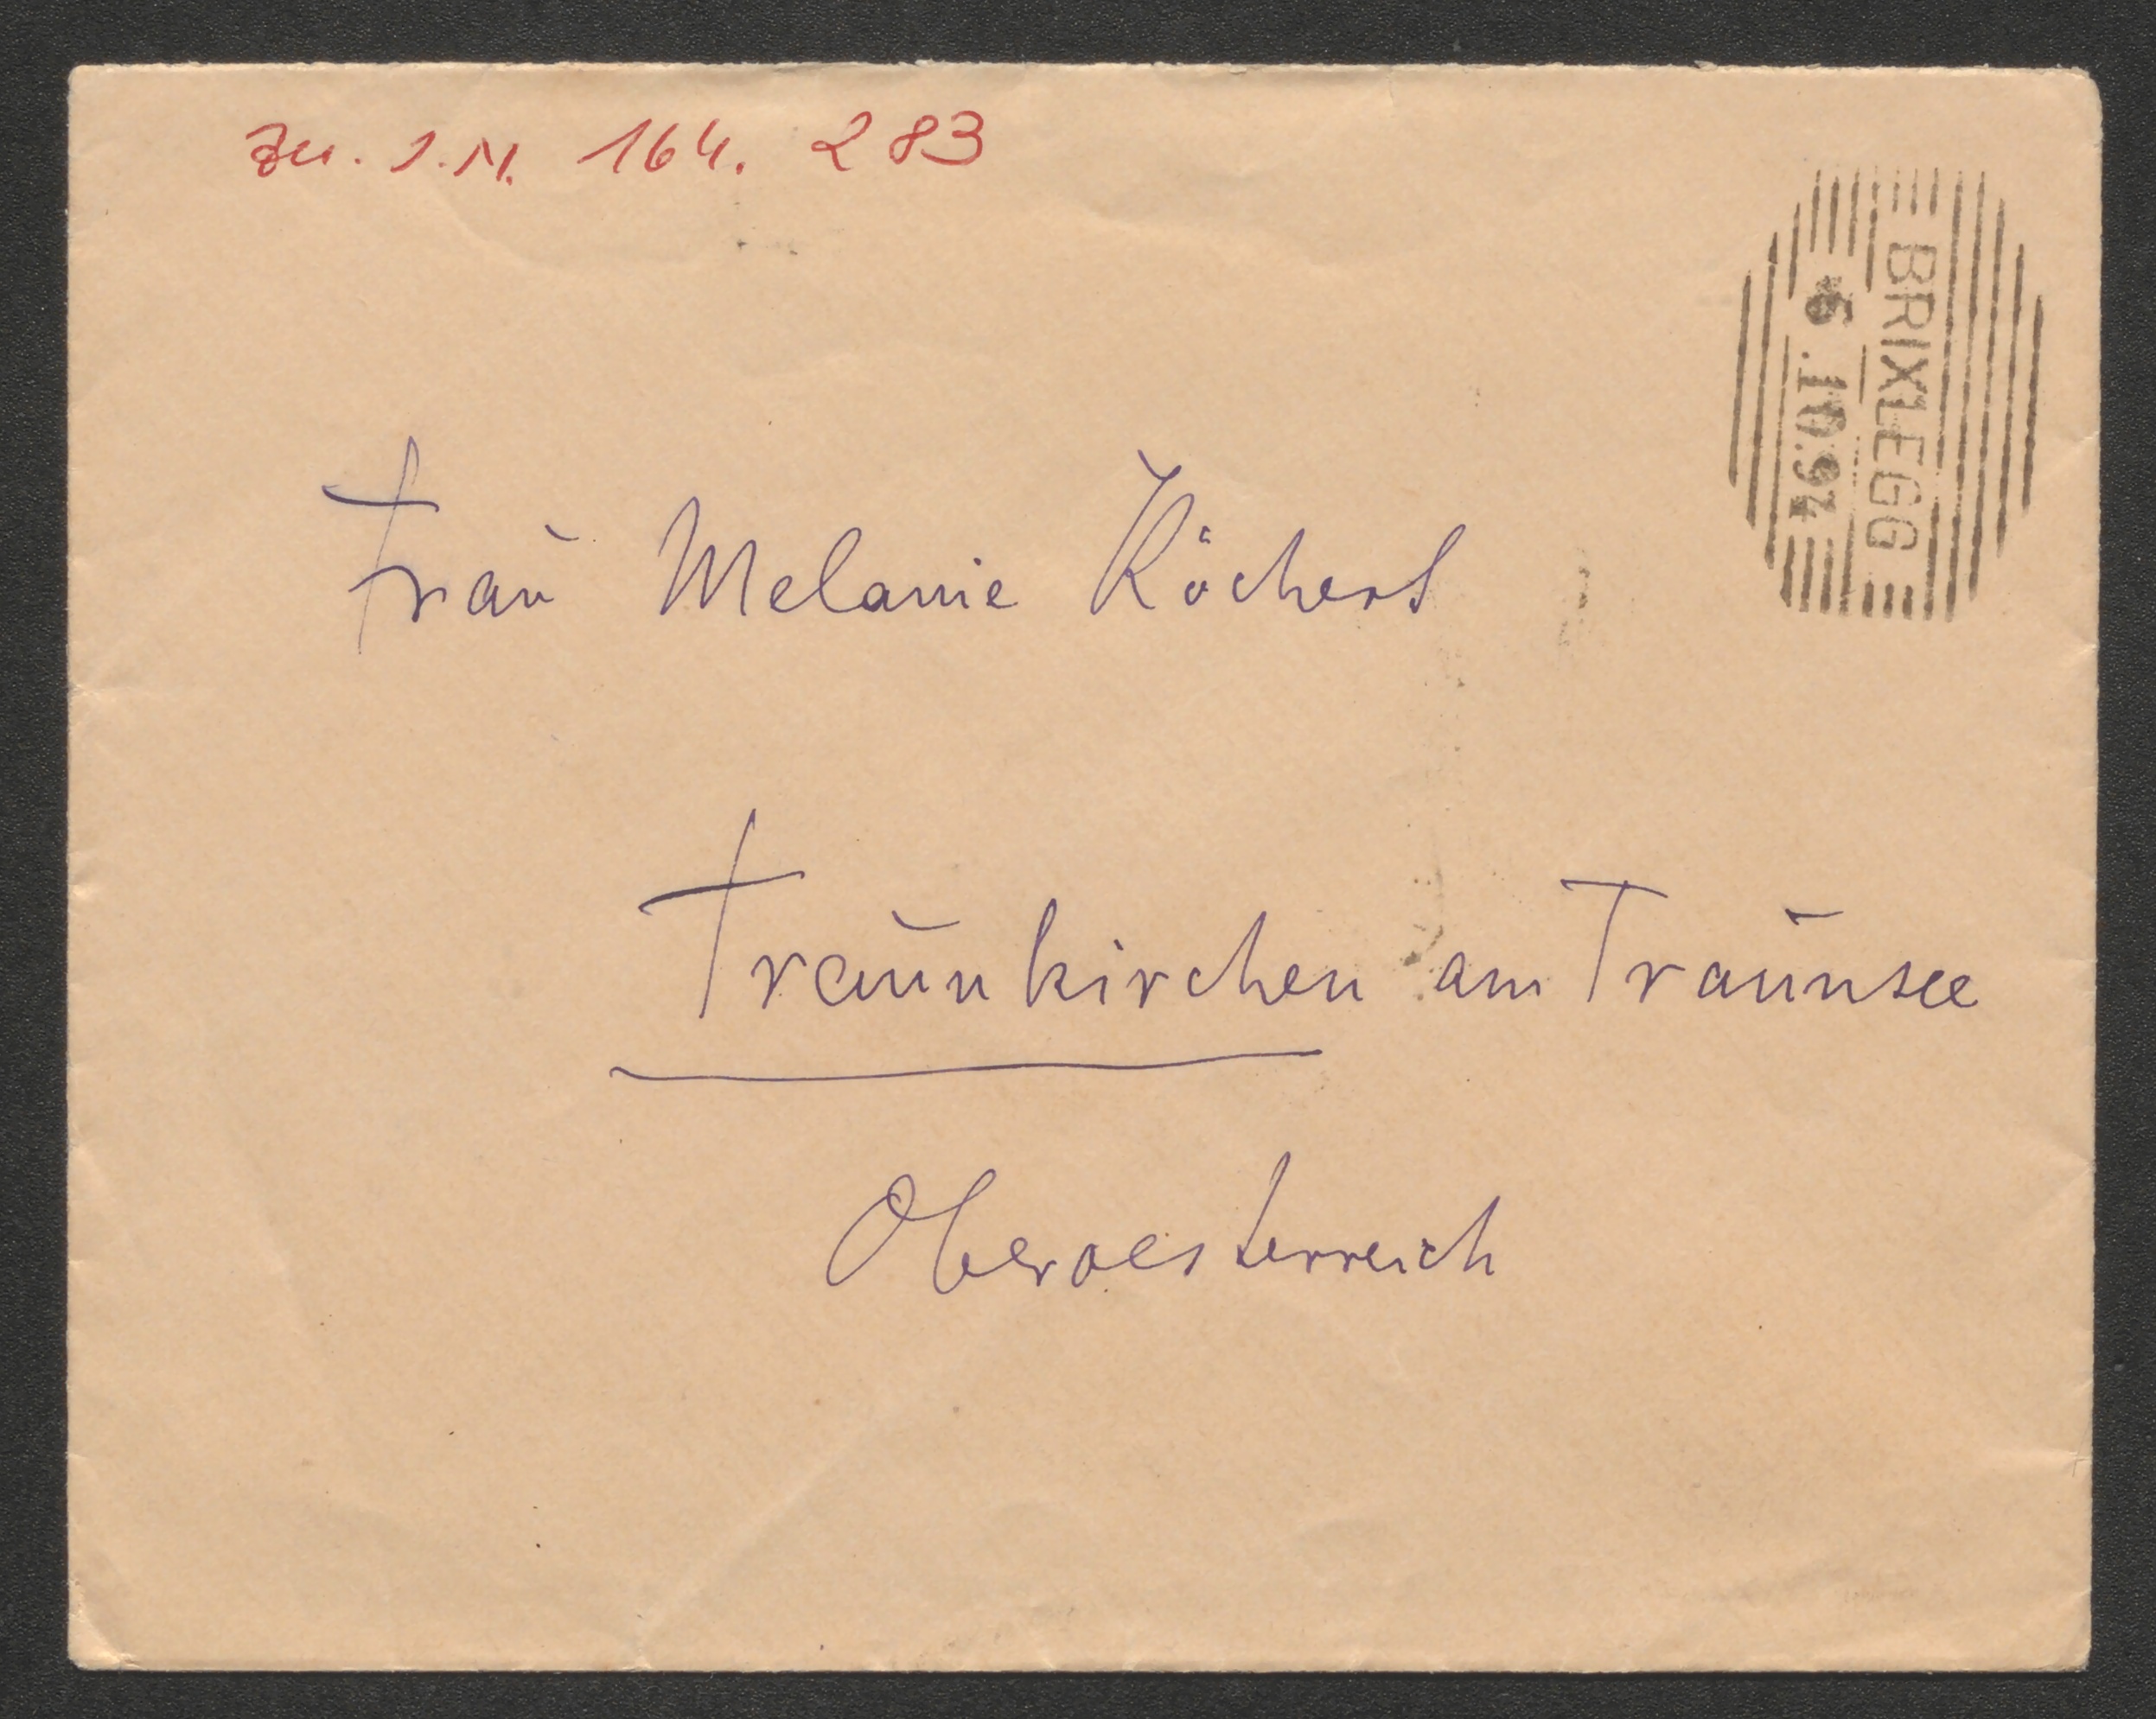 zu. I.N. 164. 283
BRIXLEGG
6 . 10. 94
Frau Melanie Köchert
Traunkirchen am Traunsee
Oberoesterreich